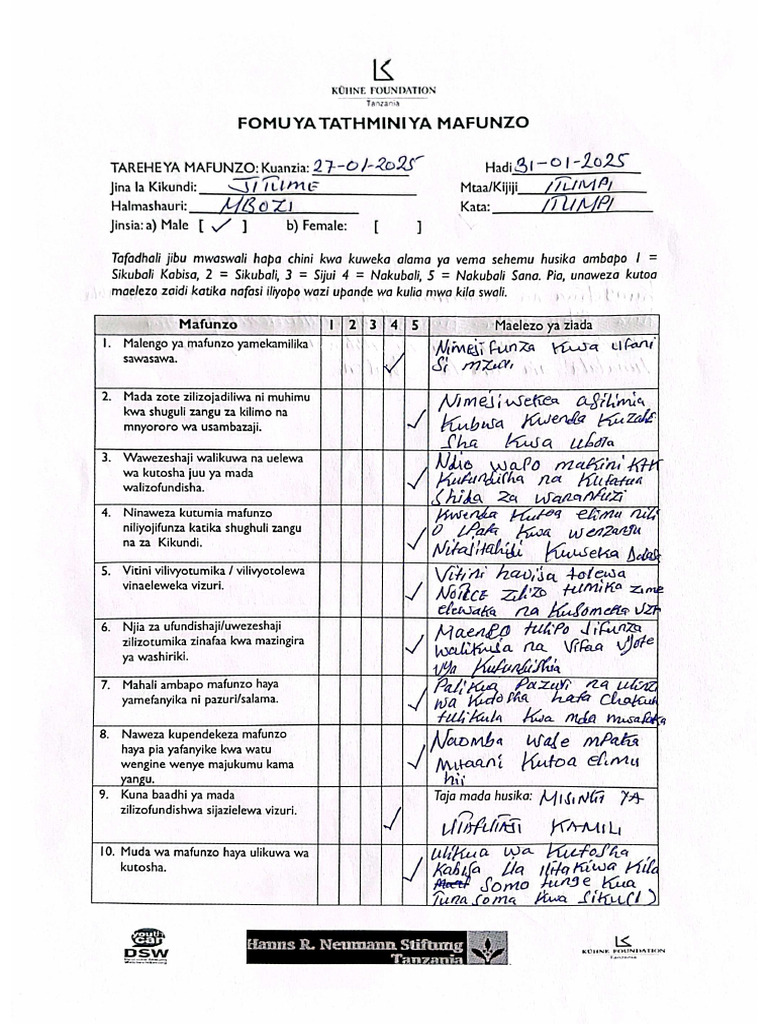 KÜHNE FOUNDATION
Tanzania
FOMU YA TATHMINI YA MAFUNZO
TAREHE YA MAFUNZO: Kuanzia: 27-01-2025 Hadi 31-01-2025
Jina la Kikundi: JITUME Mtaa/Kijiji ITUMPI
Halmashauri: MBOZI Kata: ITUMPI
Jinsia: a) Male [ ✓ ] b) Female: [ ]
Tafadhali jibu mwaswali hapa chini kwa kuweka alama ya vema sehemu husika ambapo 1 =
Sikubali Kabisa, 2 = Sikubali, 3 = Sijui 4 = Nakubali, 5 = Nakubali Sana. Pia, unaweza kutoa
maelezo zaidi katika nafasi iliyopo wazi upande wa kulia mwa kila swali.
Mafunzo 1 2 3 4 5 Maelezo ya ziada
1. Malengo ya mafunzo yamekamilika
sawasawa.
✓
Nimejifunza kwa ufani
si mzuri
2. Mada zote zilizojadiliwa ni muhimu
kwa shuguli zangu za kilimo na
mnyororo wa usambazaji.
✓
Nimejiwekea asilimia
Kubwa Kwenda
sha Kwa ubora
3. Wawezeshaji walikuwa na uelewa
wa kutosha juu ya mada
walizofundisha.
✓
Ndio wapo makini KTK
Kufundisha na Kutatua
Shida za wanafunzi
4. Ninaweza kutumia mafunzo
niliyojifunza katika shughuli zangu
na za Kikundi.
✓
Kwenda Kutoa elimu nili
O ipata Kwa wenzangu
Nitajitahidi Kuweka
5. Vitini vilivyotumika / vilivyotolewa
vinaeleweka vizuri.
✓
Vitini havija tolewa
zilizo tumika zime
elewaka na Kusomeka vzr
6. Njia za ufundishaji/uwezeshaji
zilizotumika zinafaa kwa mazingira
ya washiriki.
✓
Maengo tulipo jifunza
walikuja na vifaa vyote
vya Kufundishia
7. Mahali ambapo mafunzo haya
yamefanyika ni pazuri/salama.
✓
Palikua Pazuri na ulinzi
wa Kutosha hata chakula
tulikula Kwa mda mwafaka
8. Naweza kupendekeza mafunzo
haya pia yafanyike kwa watu
wengine wenye majukumu kama
yangu.
✓
Naomba waje mpaka
Mitaani Kutoa elimu
hii
9. Kuna baadhi ya mada
zilizofundishwa sijazielewa vizuri.
✓
Taja mada husika: MISINGI YA
UTAFUTAJI KAMILI
10. Muda wa mafunzo haya ulikuwa wa
kutosha.
✓
ulikua wa Kutosha
Kabisa ila ilitakiwa Kila
somo tunge Kua
Tuna soma Kwa siku(1)
youth
car
DSW
Hanns R. Neumann Stiftung
Tanzania
KÜHNE FOUNDATION